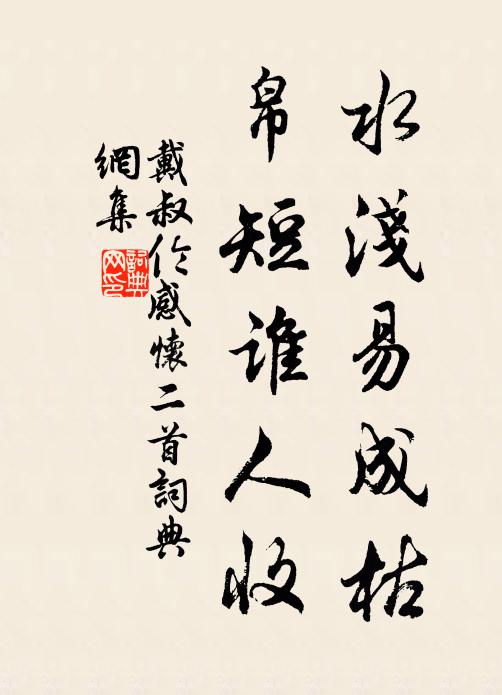 水淺易成枯
帛短誰人收
戴叔伦感懷二首詞典
網集
詞典
网印